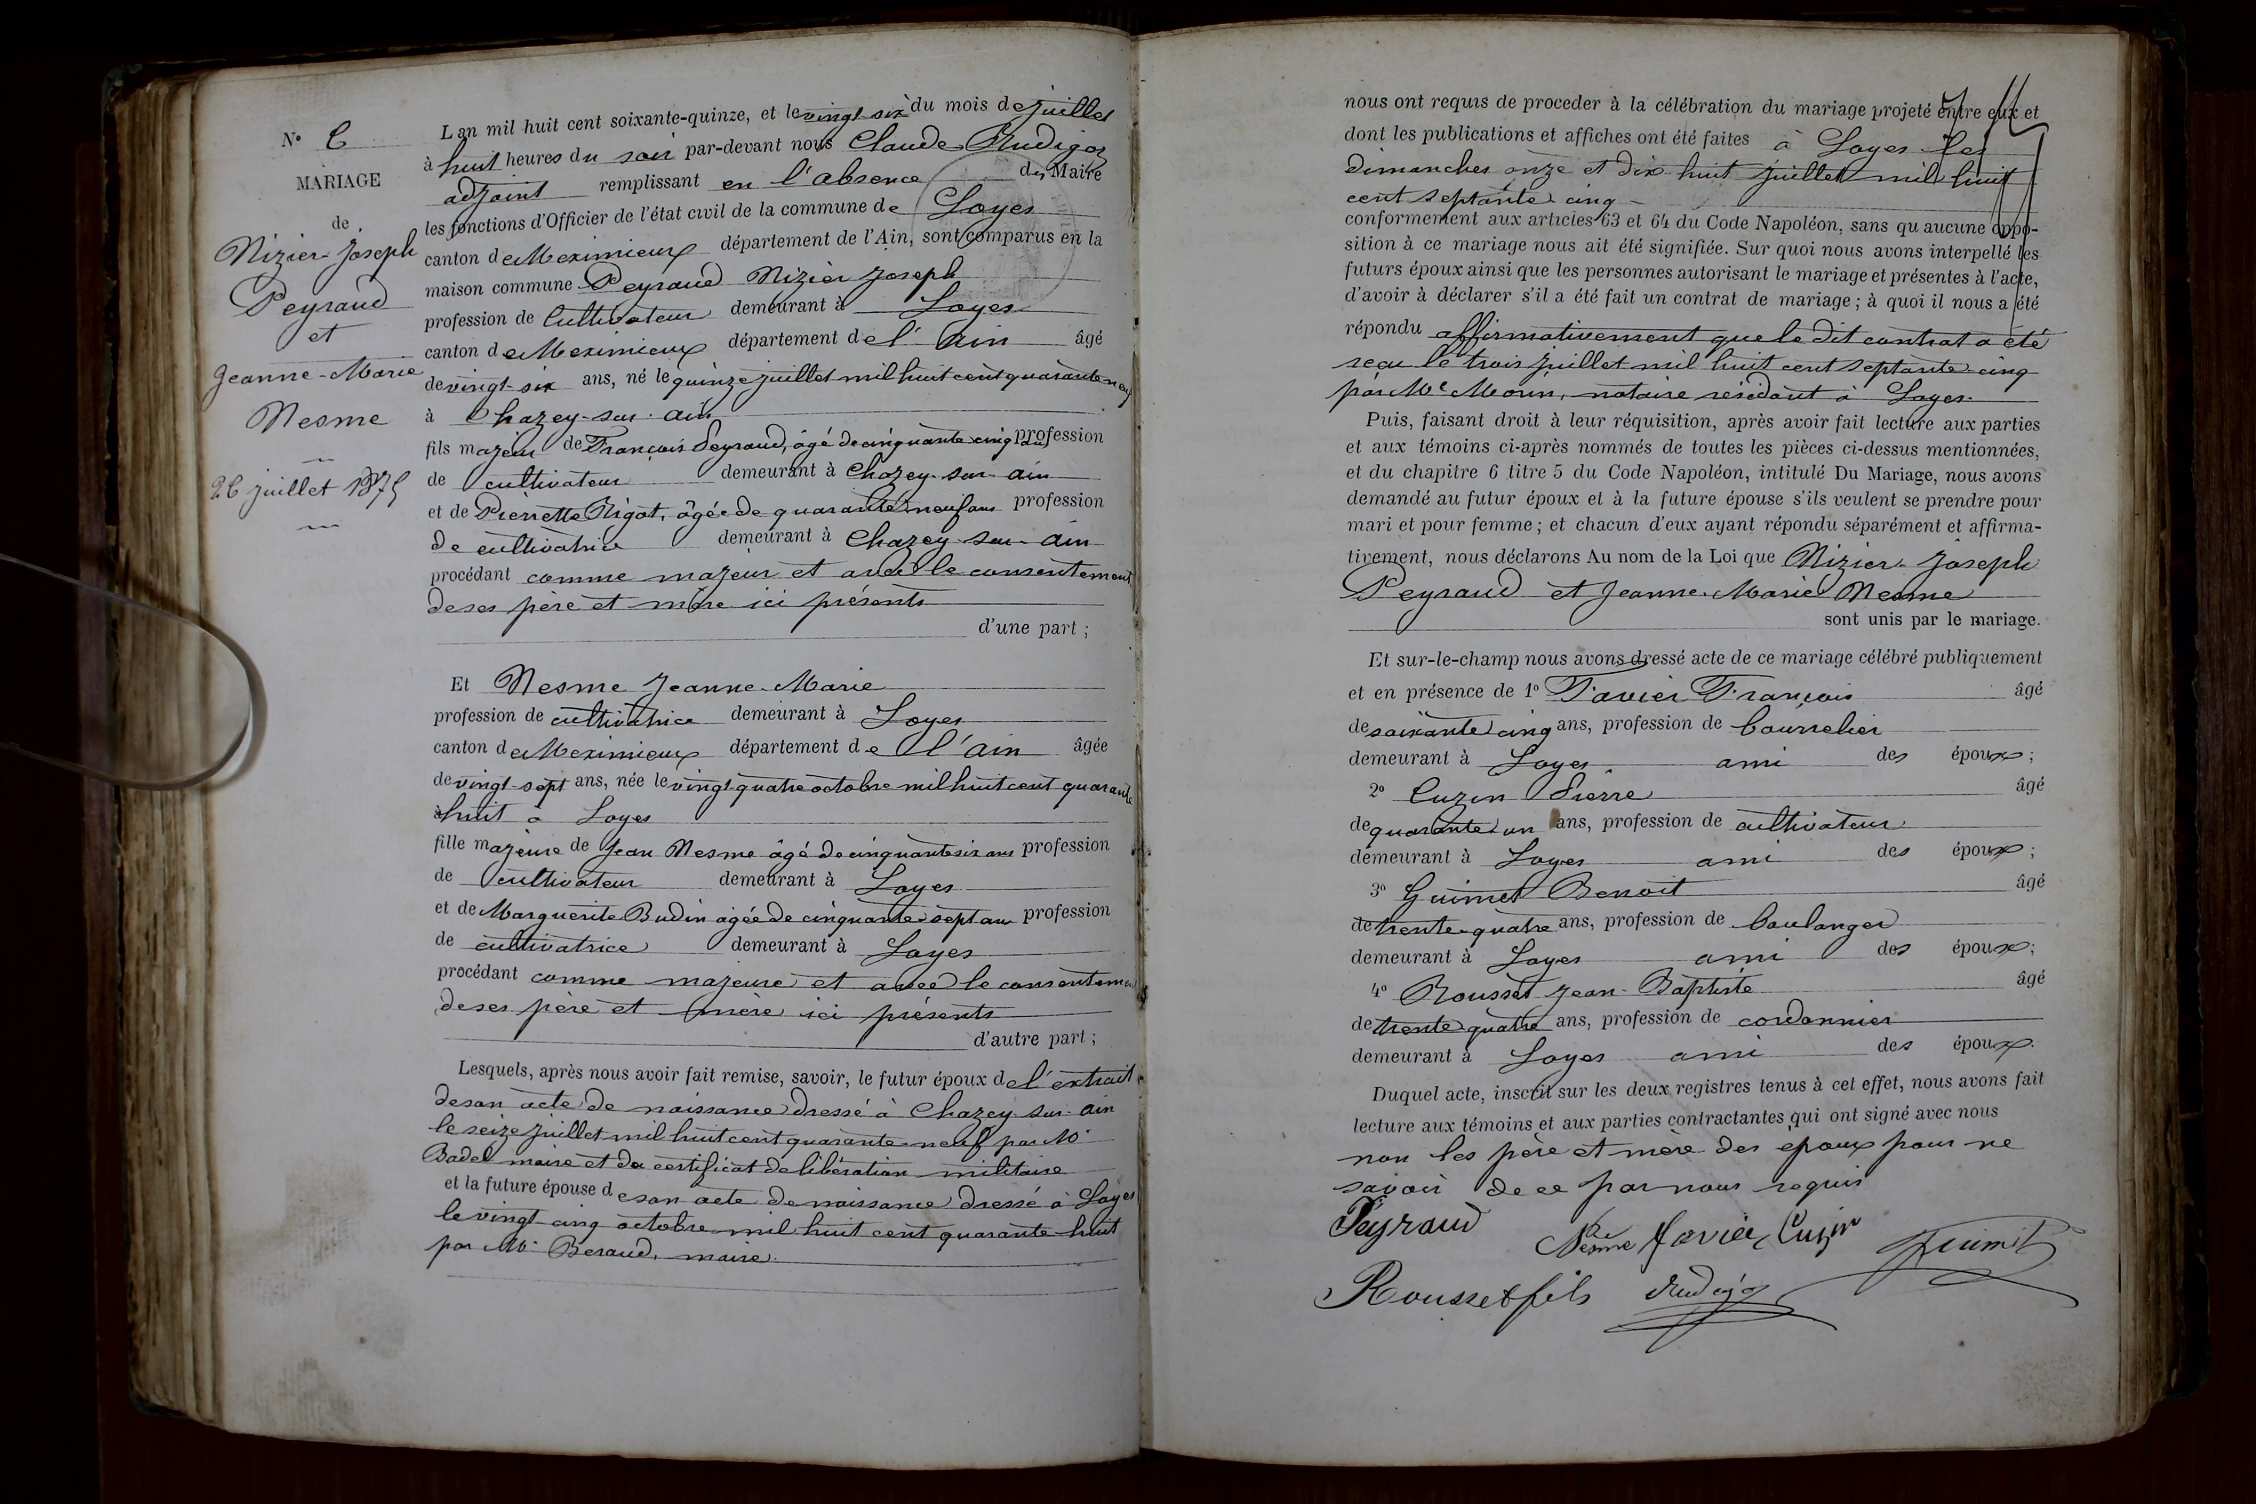 N° 6
MARIAGE
de
Nizier-Joseph
Peyraud
et
Jeanne-Marie
Nesme
26 juillet 1875
L'an mil huit cent soixante-quinze, et le vingt-six du mois de juillet
à huit heures du soir par-devant nous Claude Rudigoz
adjoint remplissant en l'absence du Maire
les fonctions d'Officier de l'état civil de la commune de Loyes
canton de Meximieux département de l'Ain, sont comparus en la
maison commune Peyraud Nizier Joseph
profession de Cultivateur demeurant à Loyes
canton de Meximieux département de l'Ain âgé
de vingt-six ans, né le quinze juillet mil huit cent quarante neuf
à Chazey-sur-ain
fils majeur de François Peyraud, âgé de cinquante cinq profession
de cultivateur demeurant à Chazey-sur-ain
et de Pierrette Rigot, âgée de quarante neuf ans profession
de cultivatrice demeurant à Chazey-sur-ain
procédant comme majeur et avec le consentement
de ses père et mère ici présents
d'une part ;
Et Nesme Jeanne-Marie
profession de cultivatrice demeurant à Loyes
canton de Meximieux département de l'ain âgée
de vingt-sept ans, née le vingt quatre octobre mil huit cent quarante
huit à Loyes
fille majeure de Jean Nesme âgé de cinquante six ans profession
de cultivateur demeurant à Loyes
et de Marguerite Budin âgée de cinquante-sept ans profession
de cultivatrice demeurant à Loyes
procédant comme majeure et avec le consentement
de ses père et mère ici présents
d'autre part ;
Lesquels, après nous avoir fait remise, savoir, le futur époux de l'extrait
de son acte de naissance dressé à Chazey-sur-ain
le seize juillet mil huit cent quarante-neuf par Mr
Badel maire et du certificat de libération militaire
et la future épouse de son acte de naissance dressé à Loyes
le vingt-cinq octobre mil huit cent quarante-huit
par Mr Beraud, maire.
nous ont requis de proceder à la célébration du mariage projeté entre eux et
dont les publications et affiches ont été faites à Loyes les
dimanches onze et dix-huit juillet mil huit
cent septante cinq
conformement aux articles 63 et 64 du Code Napoléon, sans qu aucune oppo-
sition à ce mariage nous ait été signifiée. Sur quoi nous avons interpellé les
futurs époux ainsi que les personnes autorisant le mariage et présentes à l'acte,
d'avoir à déclarer s'il a été fait un contrat de mariage ; à quoi il nous a été
répondu affirmativement que le dit contrat a été
reçu le trois juillet mil huit cent septante-cinq
par Me Morin, notaire résidant à Loyes.
Puis, faisant droit à leur réquisition, après avoir fait lecture aux parties
et aux témoins ci-après nommés de toutes les pièces ci-dessus mentionnées,
et du chapitre 6 titre 5 du Code Napoléon, intitulé Du Mariage, nous avons
demandé au futur époux et à la future épouse s'ils veulent se prendre pour
mari et pour femme ; et chacun d'eux ayant répondu séparément et affirma-
tivement, nous déclarons Au nom de la Loi que Nizier-Joseph
Peyraud et Jeanne-Marie Nesme
sont unis par le mariage.
Et sur-le-champ nous avons dressé acte de ce mariage célébré publiquement
et en présence de 1° Favier François âgé
de soixante cinq ans, profession de bourrelier
demeurant à Loyes ami des époux ;
2° Cuzin Pierre âgé
de quarante-un ans, profession de cultivateur
demeurant à Loyes ami des époux ;
3° Guimet Benoit âgé
de trente-quatre ans, profession de boulanger
demeurant à Loyes ami des époux ;
4° Rousset Jean-Baptiste âgé
de trente quatre ans, profession de cordonnier
demeurant à Loyes ami des époux.
Duquel acte, inscrit sur les deux registres tenus à cet effet, nous avons fait
lecture aux témoins et aux parties contractantes qui ont signé avec nous
non les père et mère des époux pour ne
savoir de ce par nous requis
Peyraud Nesme favier Cuzin Guimet
Rousset fils Rudigoz